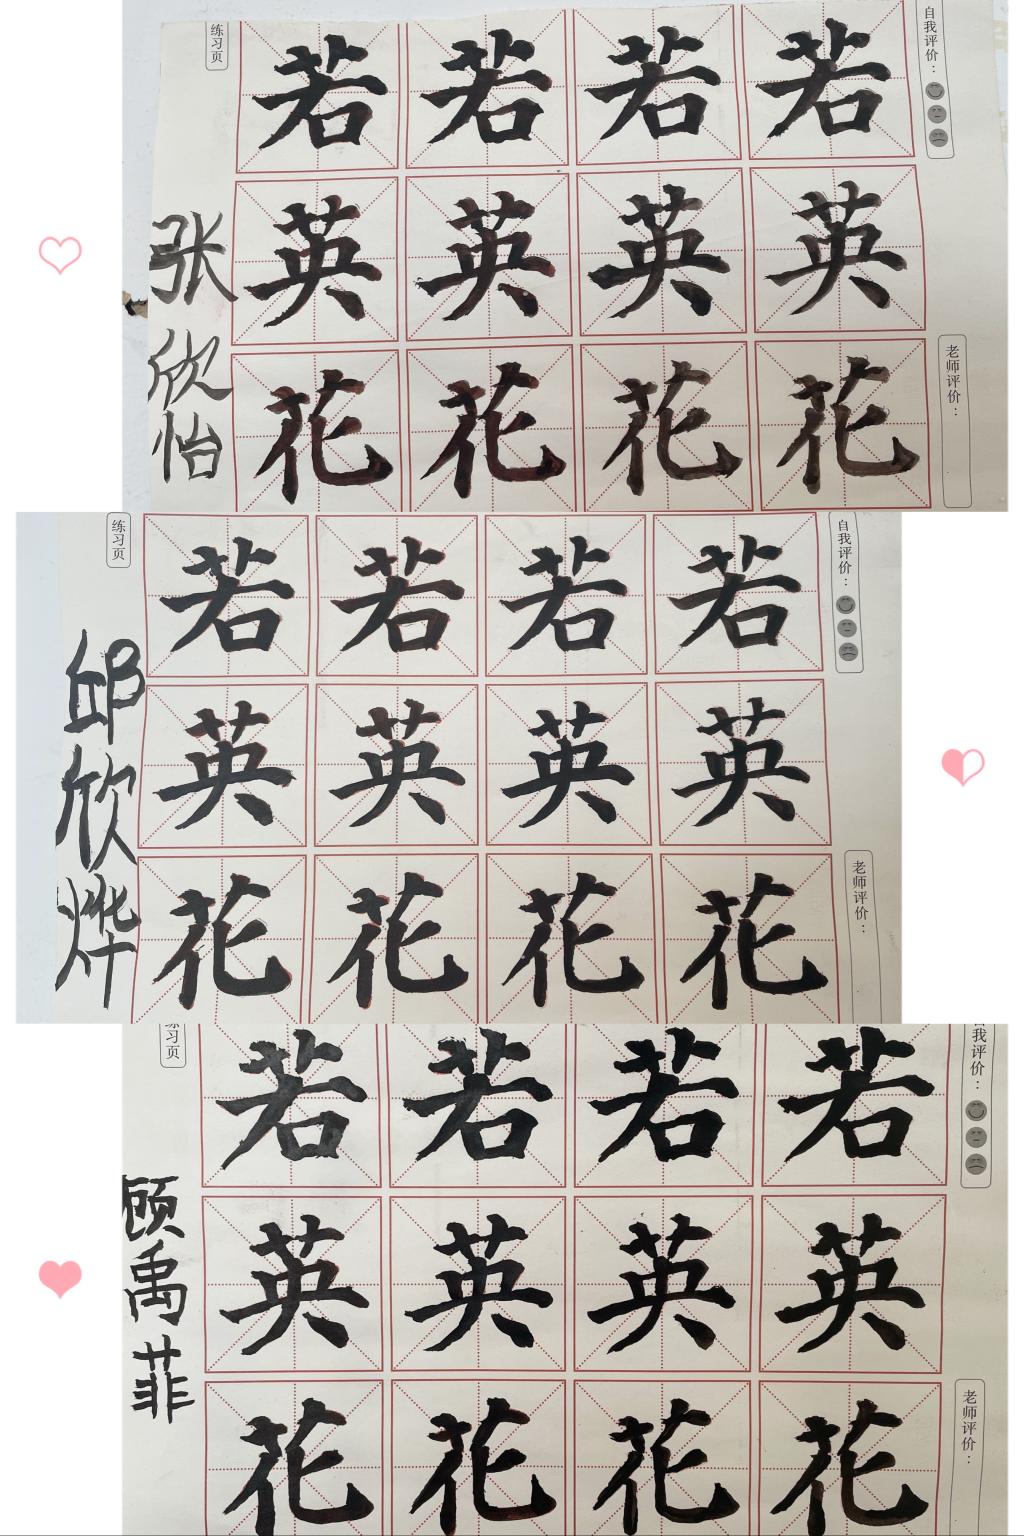 练习页
若若若若
英英英英
花花花花
张欣怡
自我评价：
老师评价：
练习页
若若若若
英英英英
花花花花
邱欣烨
自我评价：
老师评价：
练习页
若若若若
英英英英
花花花花
顾禹菲
我评价：
老师评价：